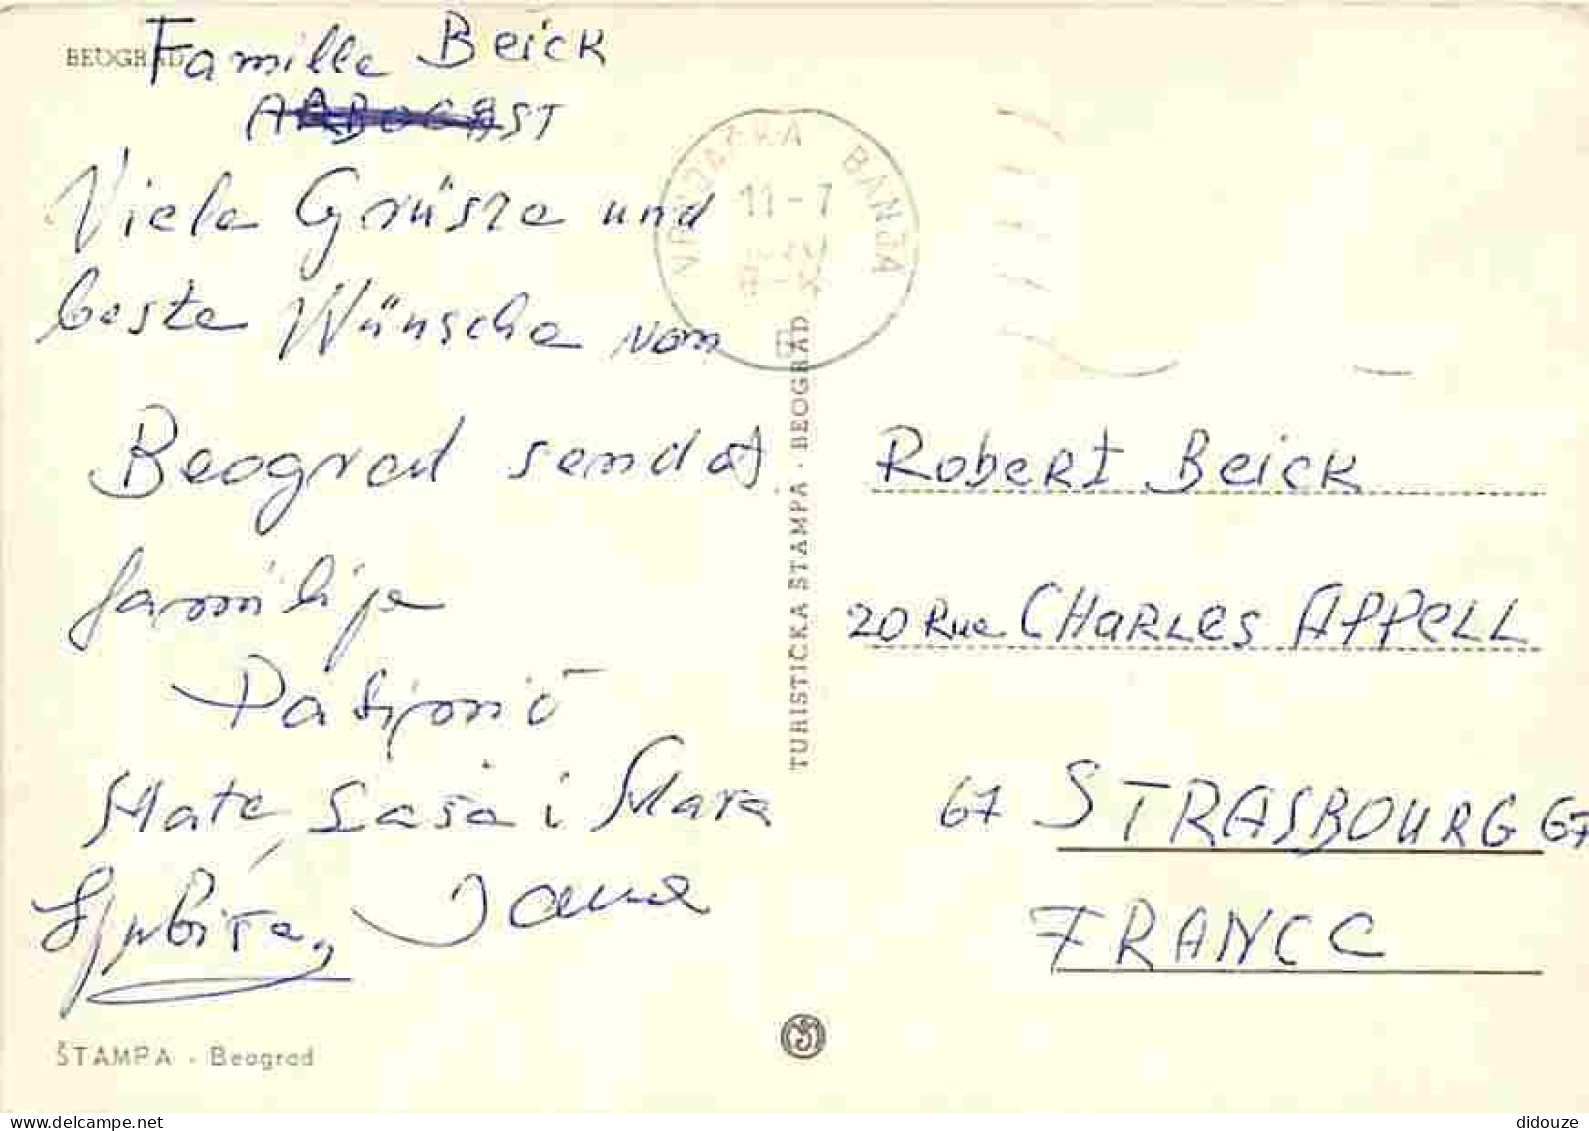 BEOGRAD
Famille Beick
ARBOGAST
Viele Grüsze und
beste Wünsche von
Beograd sendet
familije
Mate, Saša i Mara
VRNJAČKA BANJA
11-7
TURISTIČKA ŠTAMPA · BEOGRAD
Robert Beick
20 Rue CHARLES APPELL
67 STRASBOURG 67
FRANCE
ŠTAMPA - Beograd
didouze
delcampe.net